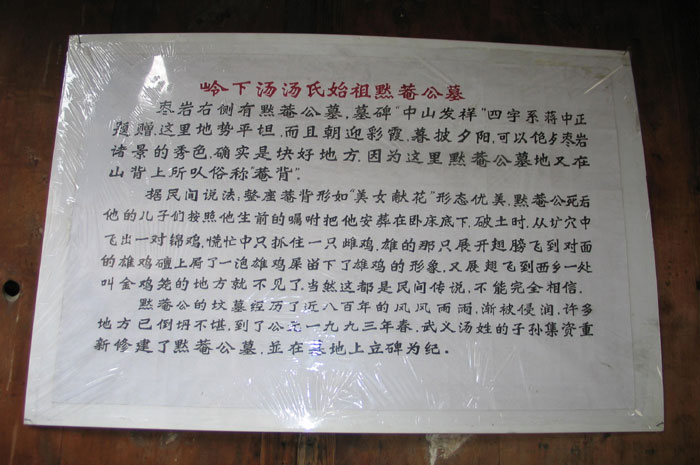 岭下汤汤氏始祖默菴公墓
枣岩右侧有默菴公墓,墓碑"中山发祥"四字系蒋中正
题赠这里地势平坦,而且朝迎彩霞,暮披夕阳,可以饱占枣岩
诸景的秀色,确实是块好地方,因为这里默菴公墓地又在
山背上所以人俗称"菴背".
据民间说法,整座菴背形如"美女献花"形态优美,默菴公死后
他的儿子们按照他生前的嘱咐把他安葬在卧床底下,破土时,从圹穴中
飞出一对锦鸡,慌忙中只抓住一只雌鸡,雄的那只展开翅膀飞到对面
的雄鸡礑上屙了一泡雄鸡屎留下了雄鸡的形象,又展翅飞到西乡一处
叫金鸡笼的地方就不见了,当然这都是民间传说,不能完全相信.
默菴公的坟墓经历了近八百年的风风雨雨,渐被侵润,许多
地方已倒坍不堪,到了公元一九九三年春,武义汤姓的子孙集资重
新修建了默菴公墓,並在墓地上立碑为纪.